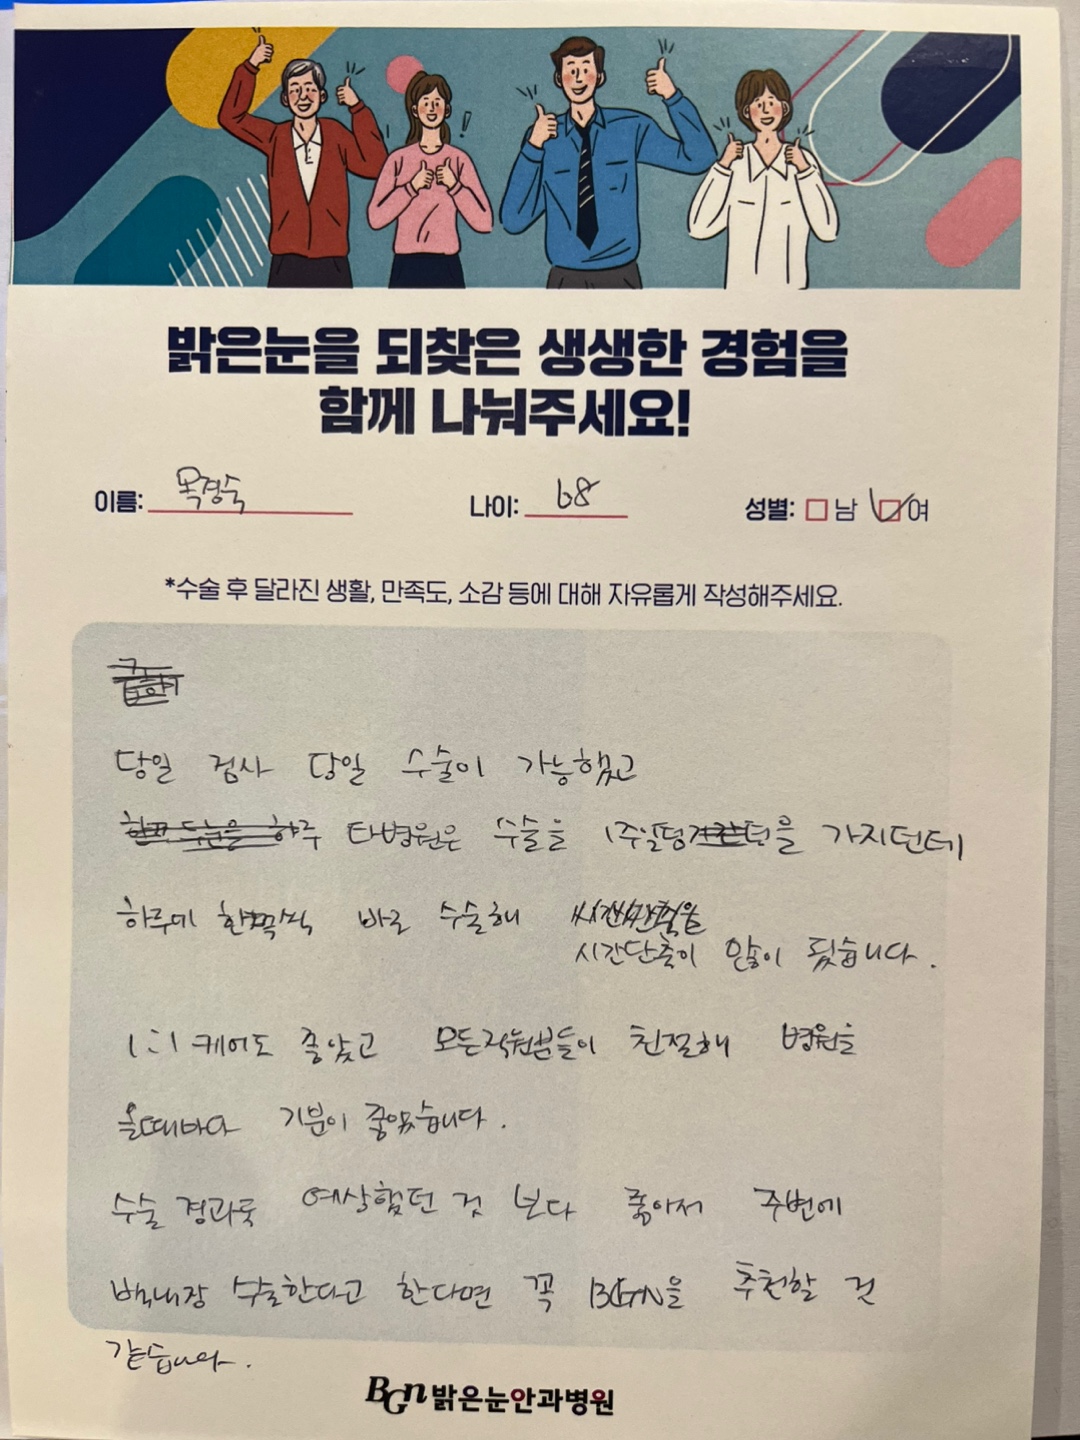 밝은눈을 되찾은 생생한 경험을
함께 나눠주세요!
이름: 옥경숙 나이: 68 성별: 남 여
*수술 후 달라진 생활, 만족도, 소감 등에 대해 자유롭게 작성해주세요.
당일 검사 당일 수술이 가능했고
타병원은 수술을 1주일텀을 가지던데
하루에 한쪽씩 바로 수술해
시간단축이 많이 됬습니다.
1:1 케어도 좋았고 모든직원분들이 친절해 병원을
올때마다 기분이 좋았습니다.
수술 경과도 예상했던 것 보다 좋아서 주변에
백내장 수술한다고 한다면 꼭 BGN을 추천할 것
같습니다.
BGN 밝은눈안과병원